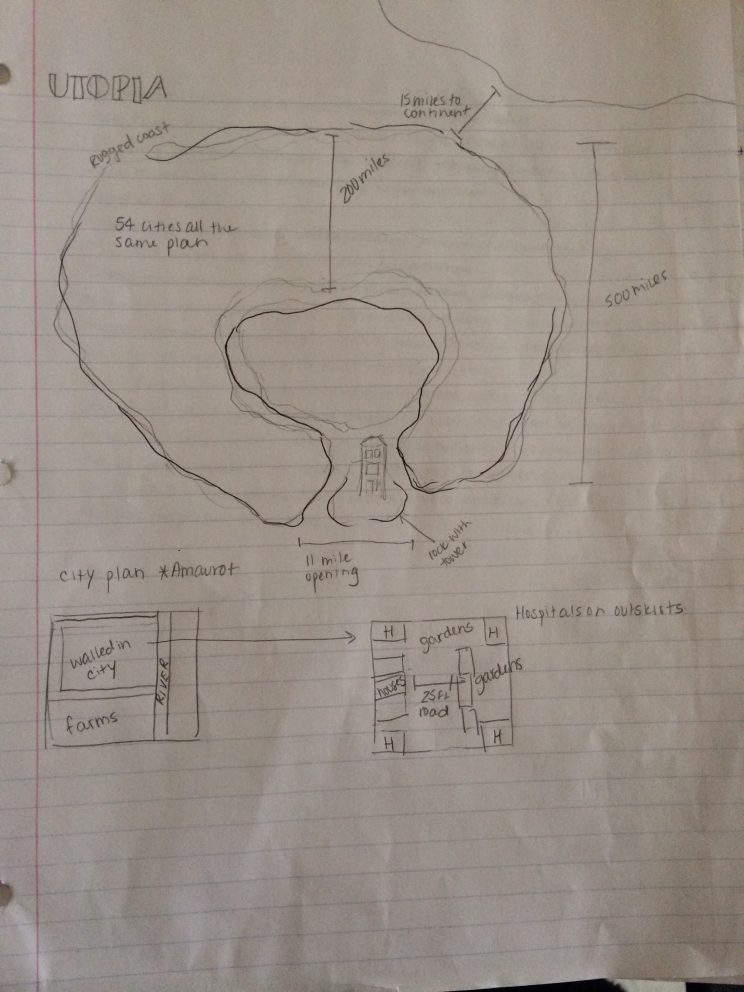 UTOPIA
15 miles to
continent
Rugged coast
200 miles
54 cities all the
same plan
500 miles
rock with
tower
11 mile
opening
city plan *Amaurot
Hospitals on outskirts
walled in
city
RIVER
farms
H
gardens
H
houses
25ft
road
gardens
H
H